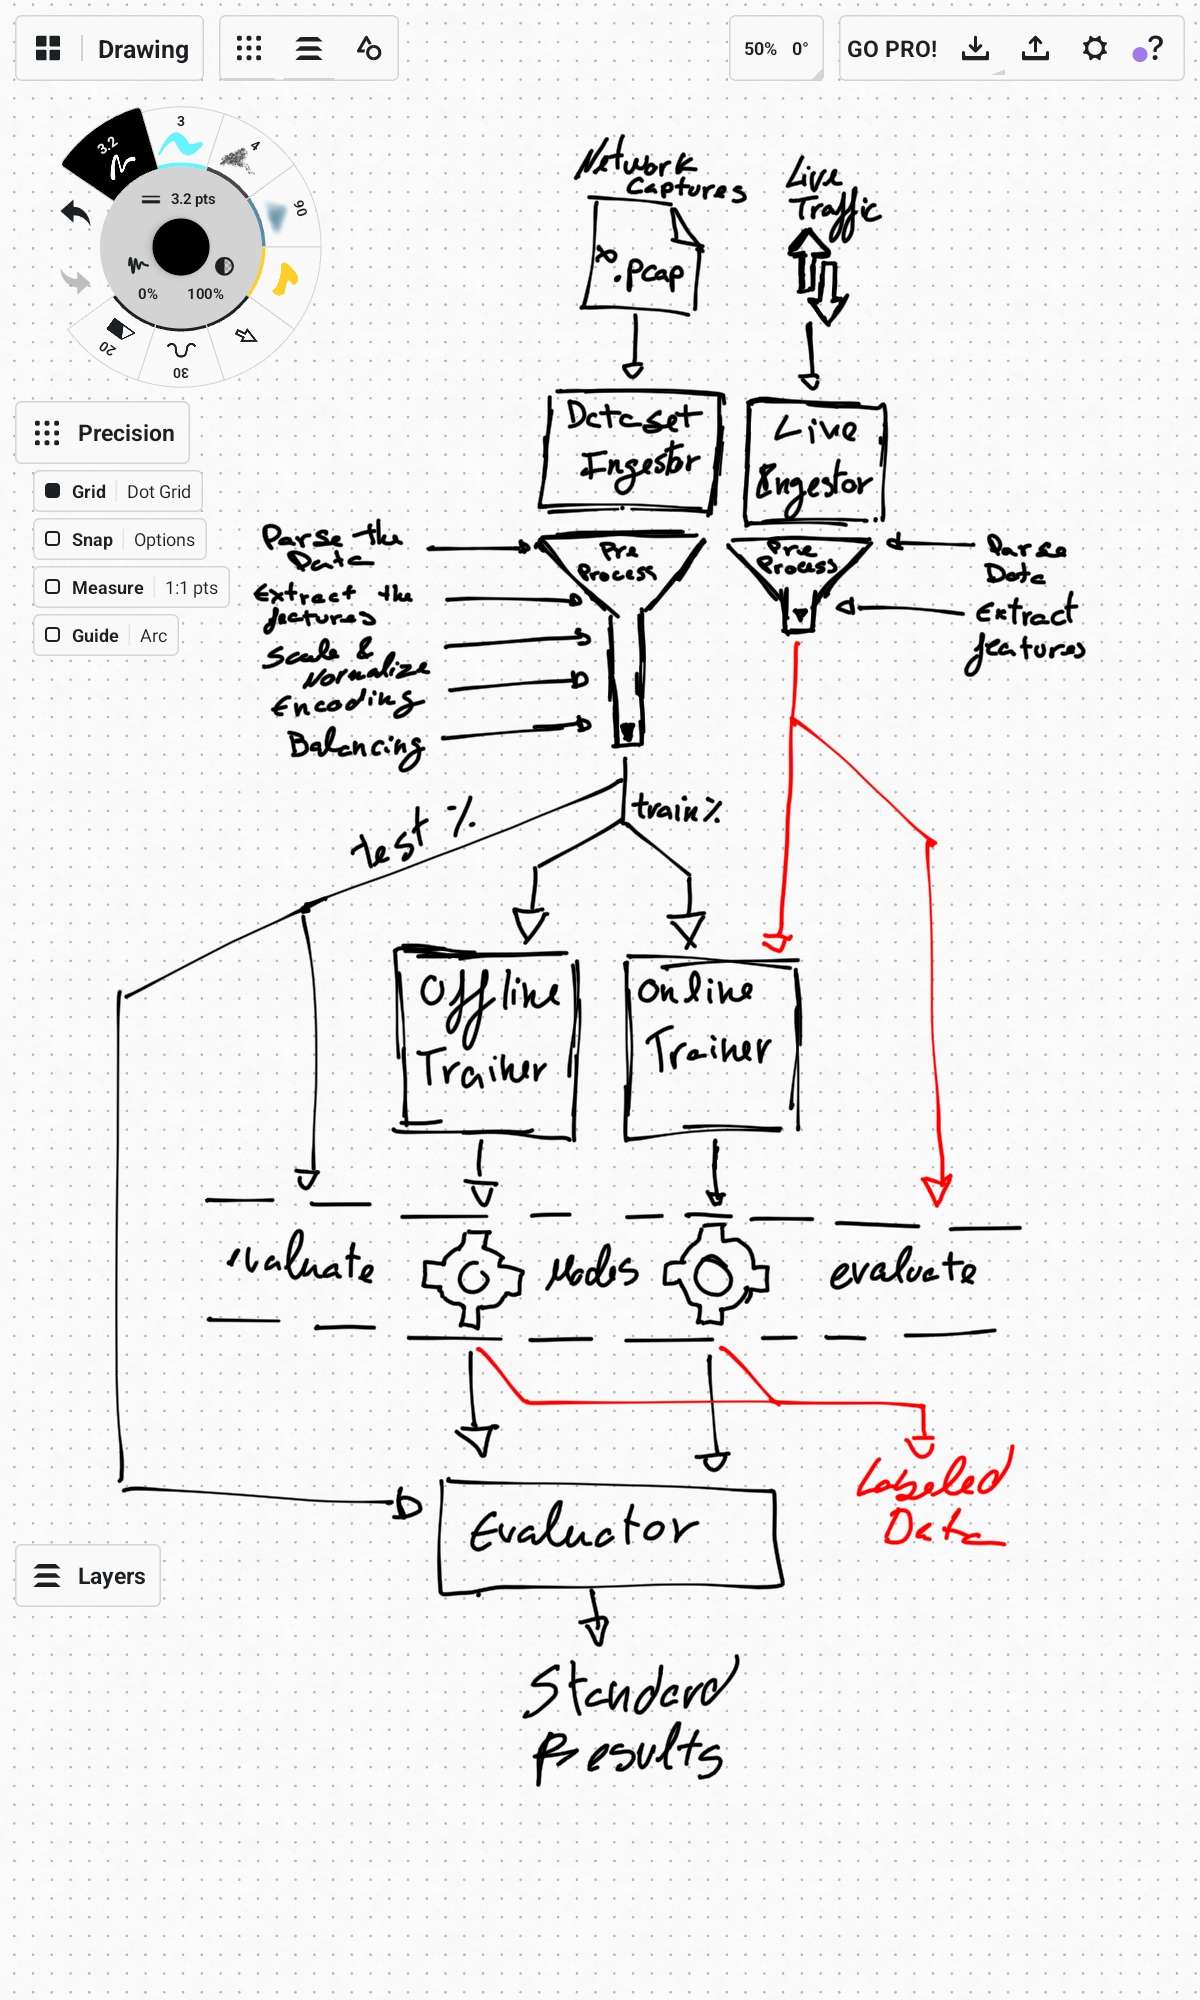 Drawing
50% 0°
GO PRO!
?
3
3.2
4
90
3.2 pts
0% 100%
20
30
Precision
Grid Dot Grid
Snap Options
Measure 1:1 pts
Guide Arc
Layers
Network
Captures
*.pcap
Live
Traffic
Dataset
Ingestor
Live
Ingestor
Pre
Process
Pre
Process
Parse the
Data
Extract the
features
Scale &
Normalize
Encoding
Balancing
Parse
Data
Extract
features
test %
train %
Offline
Trainer
Online
Trainer
evaluate
evaluate
Evaluator
Labeled
Data
Standard
Results